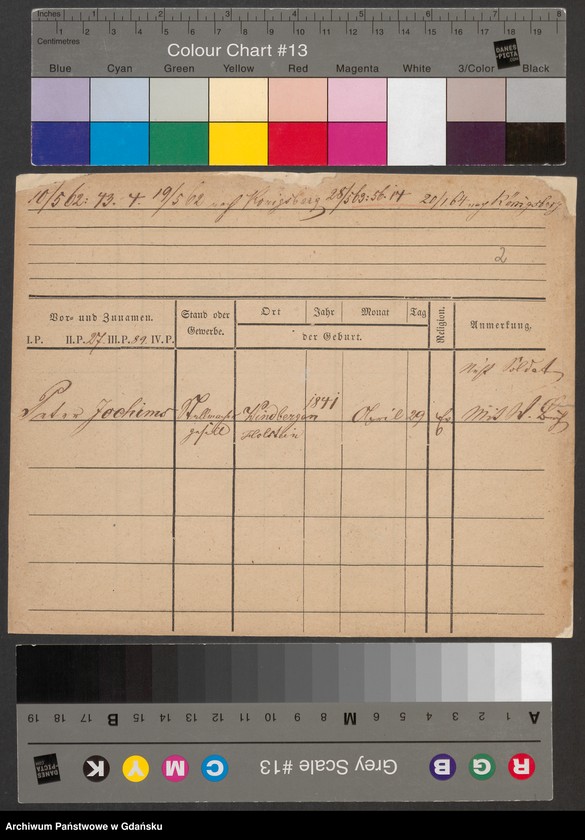 Inches 1 2 3 4 5 6 7 8
Centimetres 1 2 3 4 5 6 7 8 9 10 11 12 13 14 15 16 17 18 19
Colour Chart #13
DANES-PICTA
Blue Cyan Green Yellow Red Magenta White 3/Color Black
10/5 62: 43. 4. 19/5 62 nach Königsberg 28/5 63: 56. 14 20/1 64 nach Königsberg
2
Vor- und Zunamen. Stand oder Gewerbe. Ort Jahr Monat Tag Religion. Anmerkung.
der Geburt.
I.P. II.P. 27. III.P. 89. IV.P.
nicht Soldat
Peter Jochims Stellmacher Windbergen 1841 April 29 Ev Mit W. Buch
gesell Holstein
A 1 2 3 4 5 6 M 8 9 10 11 12 13 14 15 B 17 18 19
R G B Grey Scale #13 C M Y K
DANES-PICTA
Archiwum Państwowe w Gdańsku